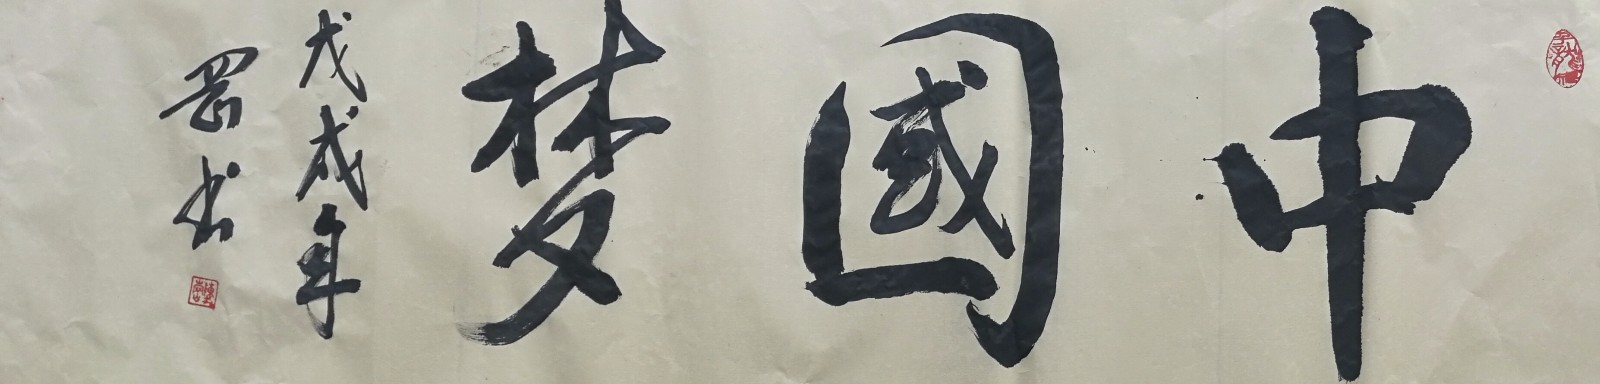 中國梦
戊戌年
罡书